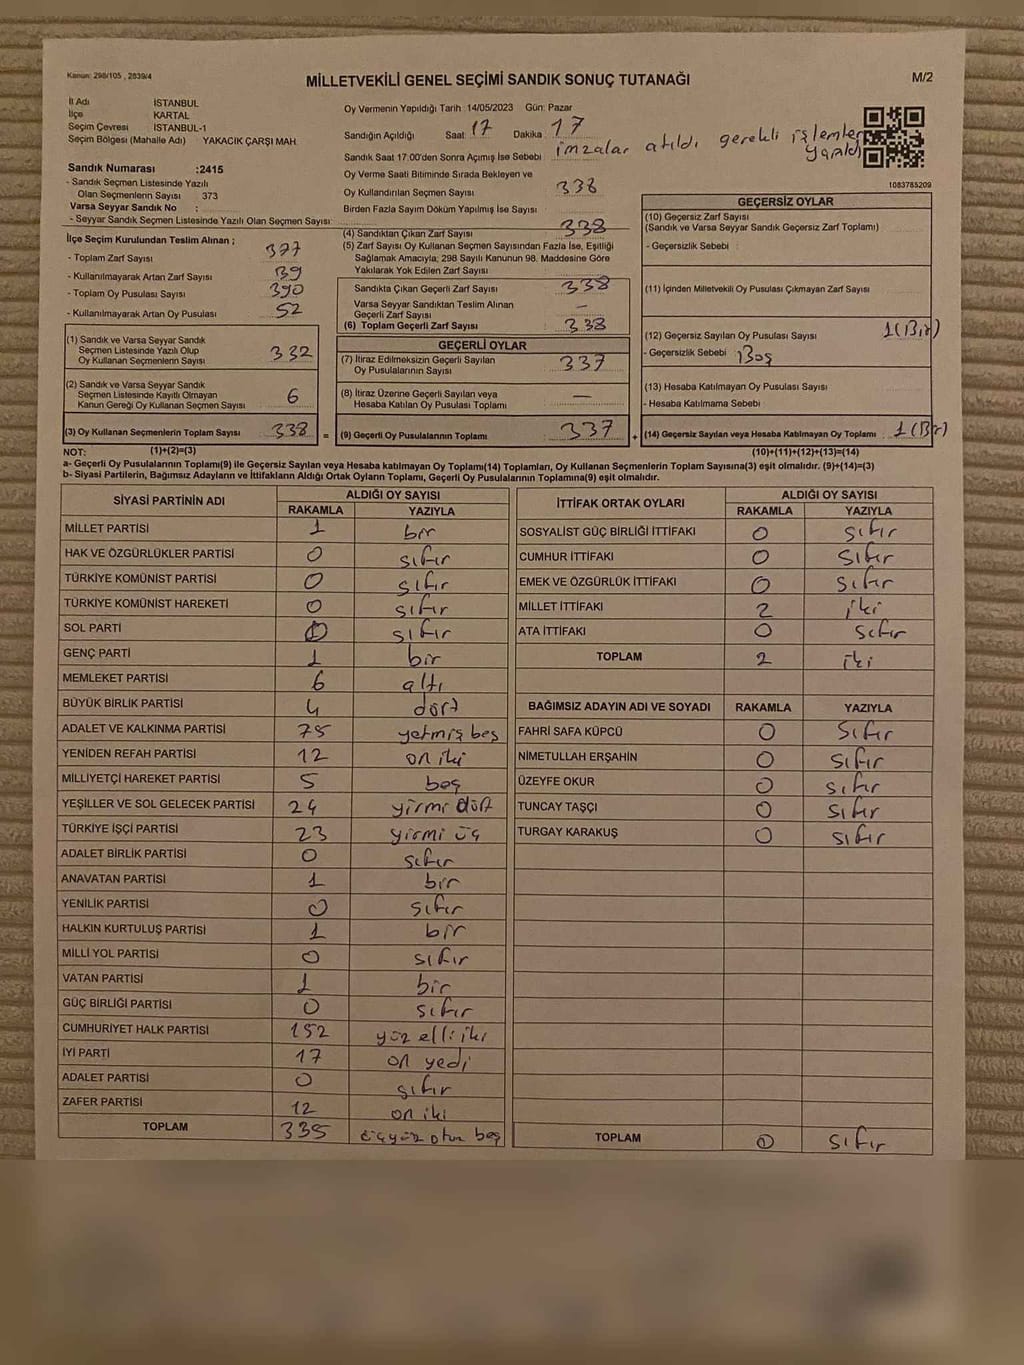 Kanun: 298/105 , 2839/4
MİLLETVEKİLİ GENEL SEÇİMİ SANDIK SONUÇ TUTANAĞI
M/2
İl Adı İSTANBUL
İlçe KARTAL
Seçim Çevresi İSTANBUL-1
Seçim Bölgesi (Mahalle Adı) YAKACIK ÇARŞI MAH.
Sandık Numarası :2415
- Sandık Seçmen Listesinde Yazılı
Olan Seçmenlerin Sayısı 373
Varsa Seyyar Sandık No :
- Seyyar Sandık Seçmen Listesinde Yazılı Olan Seçmen Sayısı:
Oy Vermenin Yapıldığı Tarih :14/05/2023 Gün: Pazar
Sandığın Açıldığı Saat: 17 Dakika : 17
Sandık Saat 17.00'den Sonra Açımış İse Sebebi imzalar atıldı gerekli işlemler yapıldı
Oy Verme Saati Bitiminde Sırada Bekleyen ve
Oy Kullandırılan Seçmen Sayısı 338
Birden Fazla Sayım Döküm Yapılmış İse Sayısı
1083785209
İlçe Seçim Kurulundan Teslim Alınan ;
- Toplam Zarf Sayısı 377
- Kullanılmayarak Artan Zarf Sayısı 39
- Toplam Oy Pusulası Sayısı 390
- Kullanılmayarak Artan Oy Pusulası 52
(1) Sandık ve Varsa Seyyar Sandık
Seçmen Listesinde Yazılı Olup
Oy Kullanan Seçmenlerin Sayısı 332
(2) Sandık ve Varsa Seyyar Sandık
Seçmen Listesinde Kayıtlı Olmayan
Kanun Gereği Oy Kullanan Seçmen Sayısı 6
(3) Oy Kullanan Seçmenlerin Toplam Sayısı 338 =
(4) Sandıktan Çıkan Zarf Sayısı 338
(5) Zarf Sayısı Oy Kullanan Seçmen Sayısından Fazla İse, Eşitliği
Sağlamak Amacıyla; 298 Sayılı Kanunun 98. Maddesine Göre
Yakılarak Yok Edilen Zarf Sayısı
Sandıkta Çıkan Geçerli Zarf Sayısı 338
Varsa Seyyar Sandıktan Teslim Alınan
Geçerli Zarf Sayısı —
(6) Toplam Geçerli Zarf Sayısı 338
GEÇERLİ OYLAR
(7) İtiraz Edilmeksizin Geçerli Sayılan
Oy Pusulalarının Sayısı 337
(8) İtiraz Üzerine Geçerli Sayılan veya
Hesaba Katılan Oy Pusulası Toplamı —
(9) Geçerli Oy Pusulalarının Toplamı 337 +
GEÇERSİZ OYLAR
(10) Geçersiz Zarf Sayısı
(Sandık ve Varsa Seyyar Sandık Geçersiz Zarf Toplamı)
- Geçersizlik Sebebi :
(11) İçinden Milletvekili Oy Pusulası Çıkmayan Zarf Sayısı
(12) Geçersiz Sayılan Oy Pusulası Sayısı 1(Bir)
- Geçersizlik Sebebi : Boş
(13) Hesaba Katılmayan Oy Pusulası Sayısı
- Hesaba Katılmama Sebebi :
(14) Geçersiz Sayılan veya Hesaba Katılmayan Oy Toplamı 1(Bir)
NOT: (1)+(2)=(3) (10)+(11)+(12)+(13)=(14)
a- Geçerli Oy Pusulalarının Toplamı(9) ile Geçersiz Sayılan veya Hesaba katılmayan Oy Toplamı(14) Toplamları, Oy Kullanan Seçmenlerin Toplam Sayısına(3) eşit olmalıdır. (9)+(14)=(3)
b- Siyasi Partilerin, Bağımsız Adayların ve İttifakların Aldığı Ortak Oyların Toplamı, Geçerli Oy Pusulalarının Toplamına(9) eşit olmalıdır.
SİYASİ PARTİNİN ADI ALDIĞI OY SAYISI
RAKAMLA YAZIYLA
MİLLET PARTİSİ 1 bir
HAK VE ÖZGÜRLÜKLER PARTİSİ 0 sıfır
TÜRKİYE KOMÜNİST PARTİSİ 0 sıfır
TÜRKİYE KOMÜNİST HAREKETİ 0 sıfır
SOL PARTİ 0 sıfır
GENÇ PARTİ 1 bir
MEMLEKET PARTİSİ 6 altı
BÜYÜK BİRLİK PARTİSİ 4 dört
ADALET VE KALKINMA PARTİSİ 75 yetmiş beş
YENİDEN REFAH PARTİSİ 12 on iki
MİLLİYETÇİ HAREKET PARTİSİ 5 beş
YEŞİLLER VE SOL GELECEK PARTİSİ 24 yirmi dört
TÜRKİYE İŞÇİ PARTİSİ 23 yirmi üç
ADALET BİRLİK PARTİSİ 0 sıfır
ANAVATAN PARTİSİ 1 bir
YENİLİK PARTİSİ 0 sıfır
HALKIN KURTULUŞ PARTİSİ 1 bir
MİLLİ YOL PARTİSİ 0 sıfır
VATAN PARTİSİ 1 bir
GÜÇ BİRLİĞİ PARTİSİ 0 sıfır
CUMHURİYET HALK PARTİSİ 152 yüz elli iki
İYİ PARTİ 17 on yedi
ADALET PARTİSİ 0 sıfır
ZAFER PARTİSİ 12 on iki
TOPLAM 335 üçyüz otuz beş
İTTİFAK ORTAK OYLARI ALDIĞI OY SAYISI
RAKAMLA YAZIYLA
SOSYALİST GÜÇ BİRLİĞİ İTTİFAKI 0 sıfır
CUMHUR İTTİFAKI 0 sıfır
EMEK VE ÖZGÜRLÜK İTTİFAKI 0 sıfır
MİLLET İTTİFAKI 2 iki
ATA İTTİFAKI 0 sıfır
TOPLAM 2 iki
BAĞIMSIZ ADAYIN ADI VE SOYADI RAKAMLA YAZIYLA
FAHRİ SAFA KÜPCÜ 0 sıfır
NİMETULLAH ERŞAHİN 0 sıfır
ÜZEYFE OKUR 0 sıfır
TUNCAY TAŞÇI 0 sıfır
TURGAY KARAKUŞ 0 sıfır
TOPLAM 0 sıfır